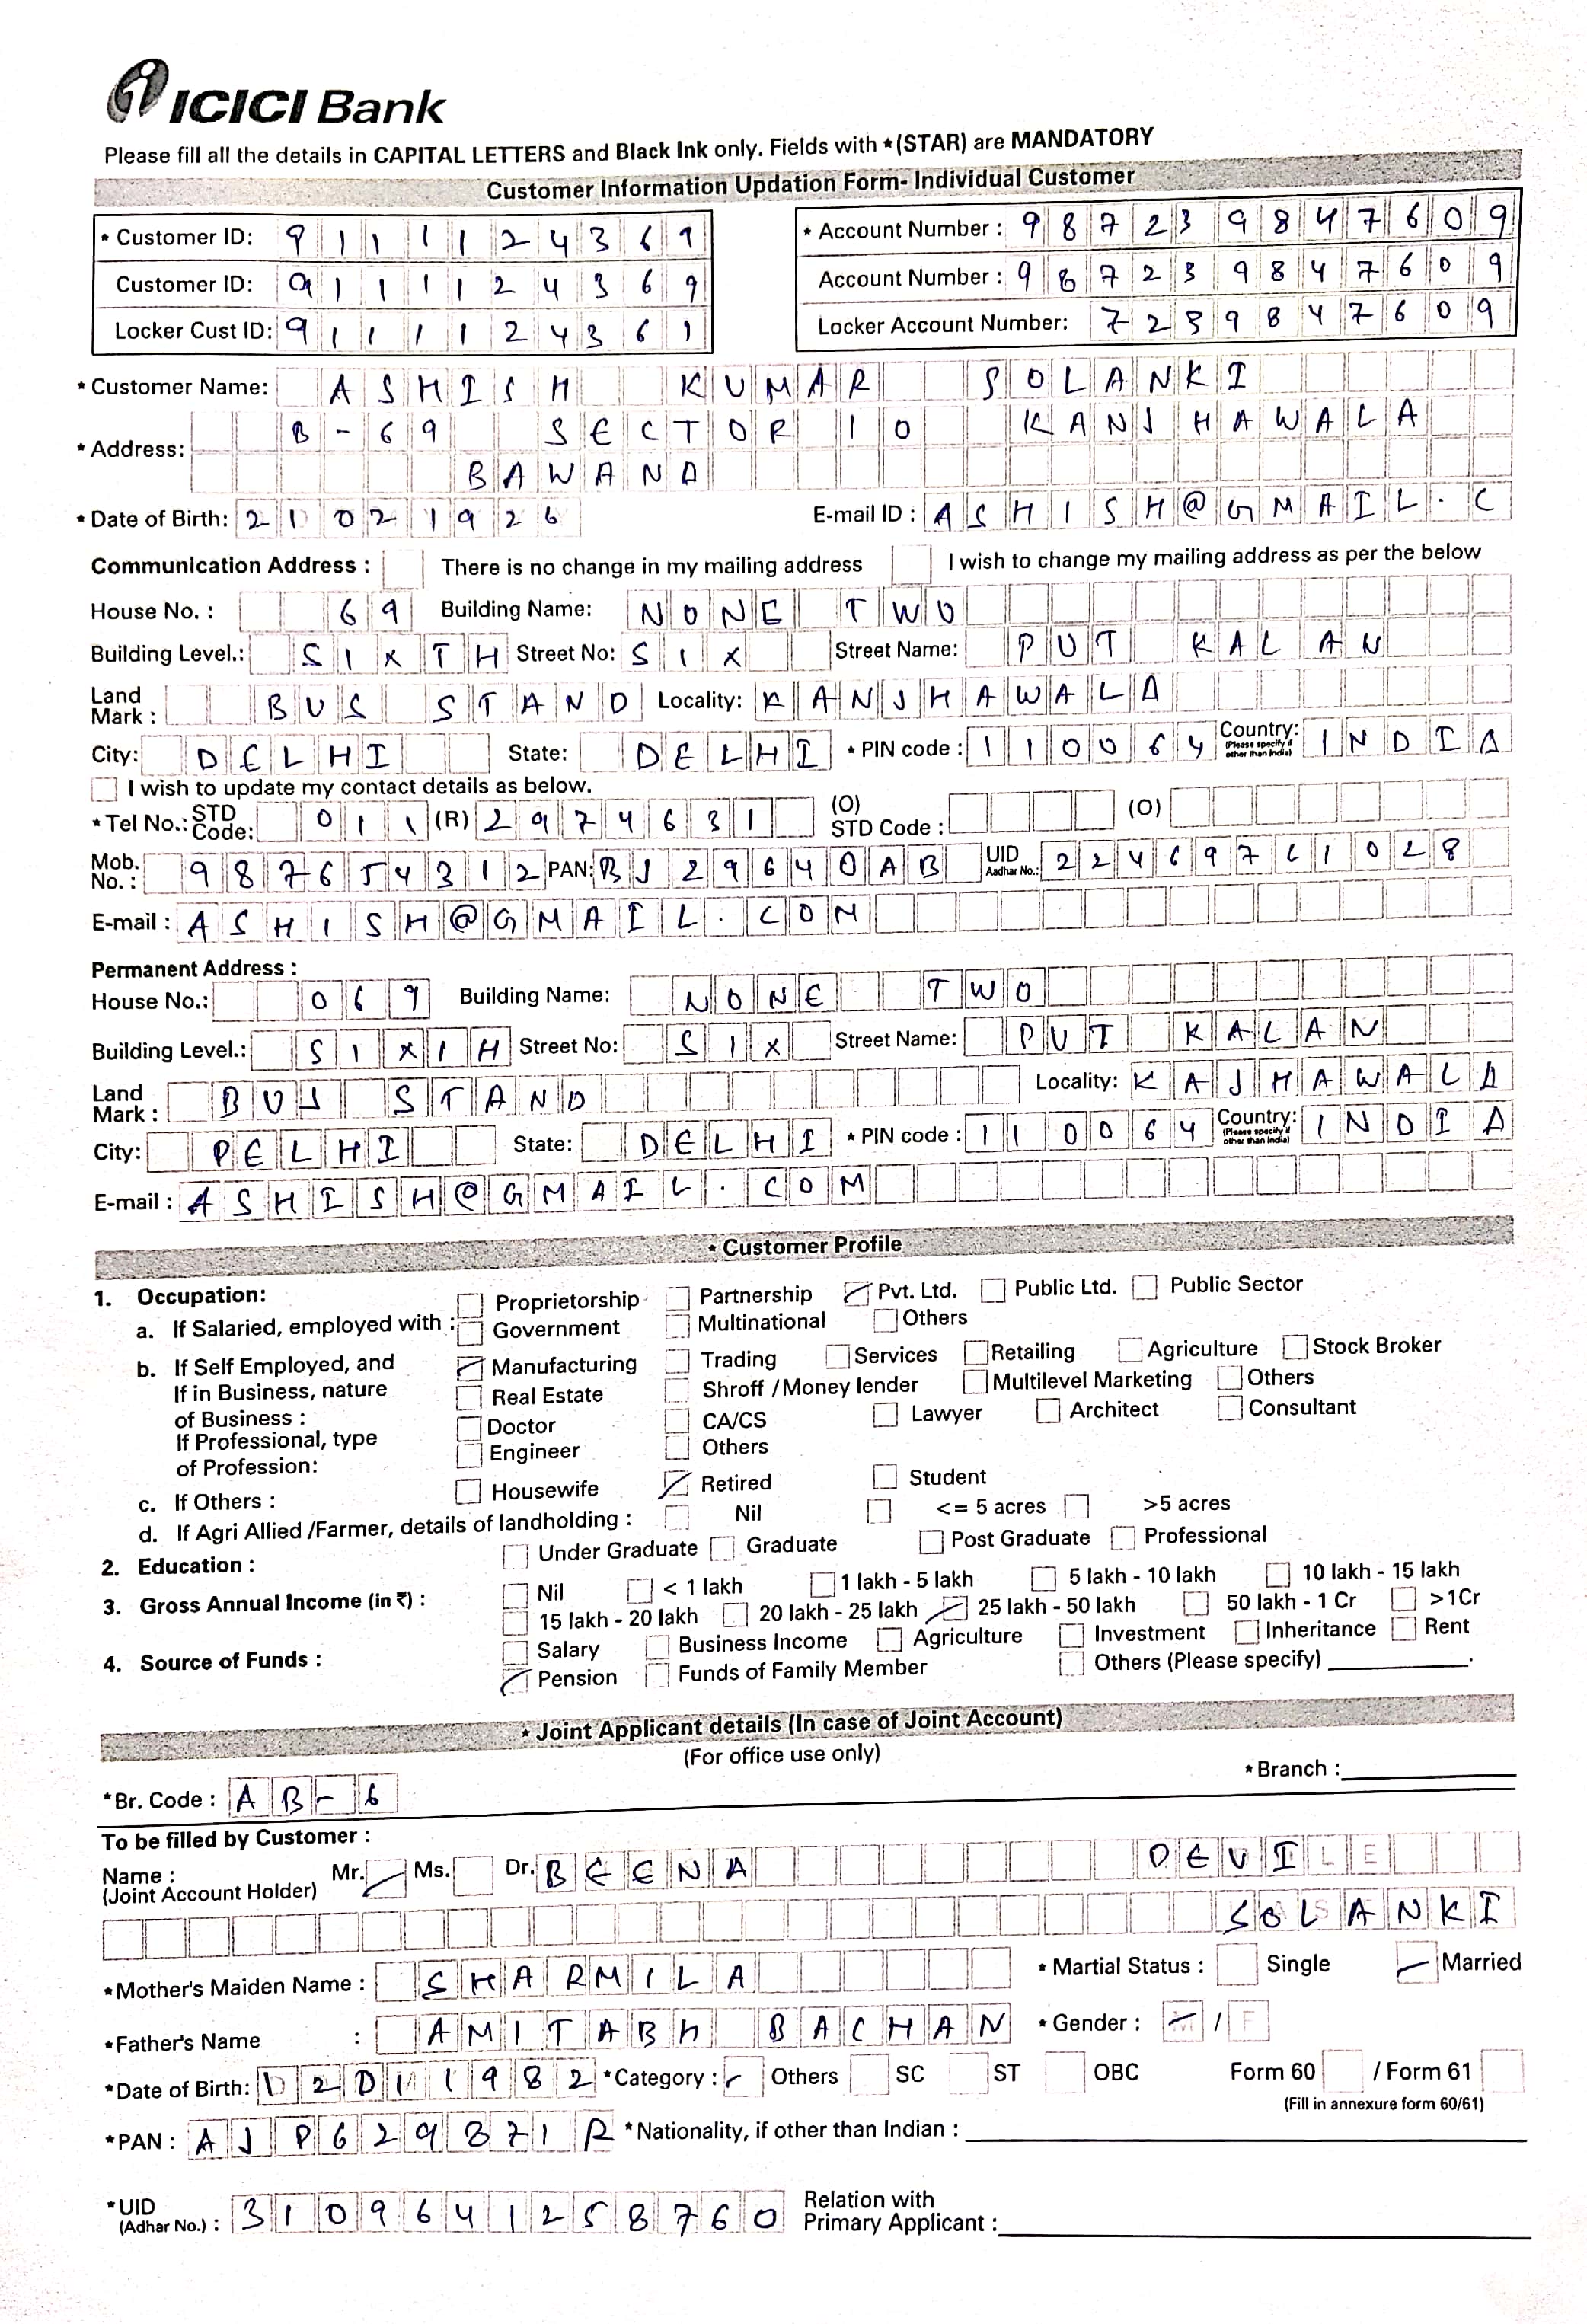 ICICI Bank
Please fill all the details in CAPITAL LETTERS and Black Ink only. Fields with *(STAR) are MANDATORY
Customer Information Updation Form- Individual Customer
* Customer ID: 9111124369 * Account Number : 987239847609
Customer ID: 9111124369 Account Number : 987239847609
Locker Cust ID: 9111124361 Locker Account Number: 7239847609
* Customer Name: ASHISH KUMAR SOLANKI
* Address: B-69 SECTOR 10 KANJHAWALA
BAWANA
* Date of Birth: 21021926 E-mail ID : ASHISH@GMAIL.C
Communication Address : There is no change in my mailing address I wish to change my mailing address as per the below
House No. : 69 Building Name: NONE TWO
Building Level.: SIXTH Street No: SIX Street Name: PUT KALAN
Land Mark : BUS STAND Locality: KANJHAWALA
City: DELHI State: DELHI * PIN code : 110064 Country: (Please specify if other than India) INDIA
I wish to update my contact details as below.
* Tel No.: STD Code: 011 (R) 2974631 (O) STD Code : (O)
Mob. No. : 987654312 PAN: BJ29640AB UID Aadhar No.: 224697611028
E-mail : ASHISH@GMAIL.COM
Permanent Address :
House No.: 069 Building Name: NONE TWO
Building Level.: SIXIH Street No: SIX Street Name: PUT KALAN
Land Mark : BUS STAND Locality: KAJHAWALA
City: DELHI State: DELHI * PIN code : 110064 Country: (Please specify if other than India) INDIA
E-mail : ASHISH@GMAIL.COM
* Customer Profile
1. Occupation:
a. If Salaried, employed with : Proprietorship Partnership Pvt. Ltd. Public Ltd. Public Sector
Government Multinational Others
b. If Self Employed, and Manufacturing Trading Services Retailing Agriculture Stock Broker
If in Business, nature Real Estate Shroff /Money lender Multilevel Marketing Others
of Business : Doctor CA/CS Lawyer Architect Consultant
If Professional, type Engineer Others
of Profession:
c. If Others : Housewife Retired Student
d. If Agri Allied /Farmer, details of landholding : Nil <= 5 acres >5 acres
2. Education : Under Graduate Graduate Post Graduate Professional
3. Gross Annual Income (in ₹) : Nil < 1 lakh 1 lakh - 5 lakh 5 lakh - 10 lakh 10 lakh - 15 lakh
15 lakh - 20 lakh 20 lakh - 25 lakh 25 lakh - 50 lakh 50 lakh - 1 Cr >1Cr
4. Source of Funds : Salary Business Income Agriculture Investment Inheritance Rent
Pension Funds of Family Member Others (Please specify)
* Joint Applicant details (In case of Joint Account)
(For office use only)
*Br. Code : AB-6 * Branch :
To be filled by Customer :
Name : (Joint Account Holder) Mr. Ms. Dr. BEENA DEVI
SOLANKI
*Mother's Maiden Name : SHARMILA * Martial Status : Single Married
*Father's Name : AMITABH BACHAN * Gender : M / F
*Date of Birth: 1982 *Category : Others SC ST OBC Form 60 / Form 61
(Fill in annexure form 60/61)
*PAN : AJP629871R *Nationality, if other than Indian :
*UID (Adhar No.) : 3109641258760 Relation with Primary Applicant :